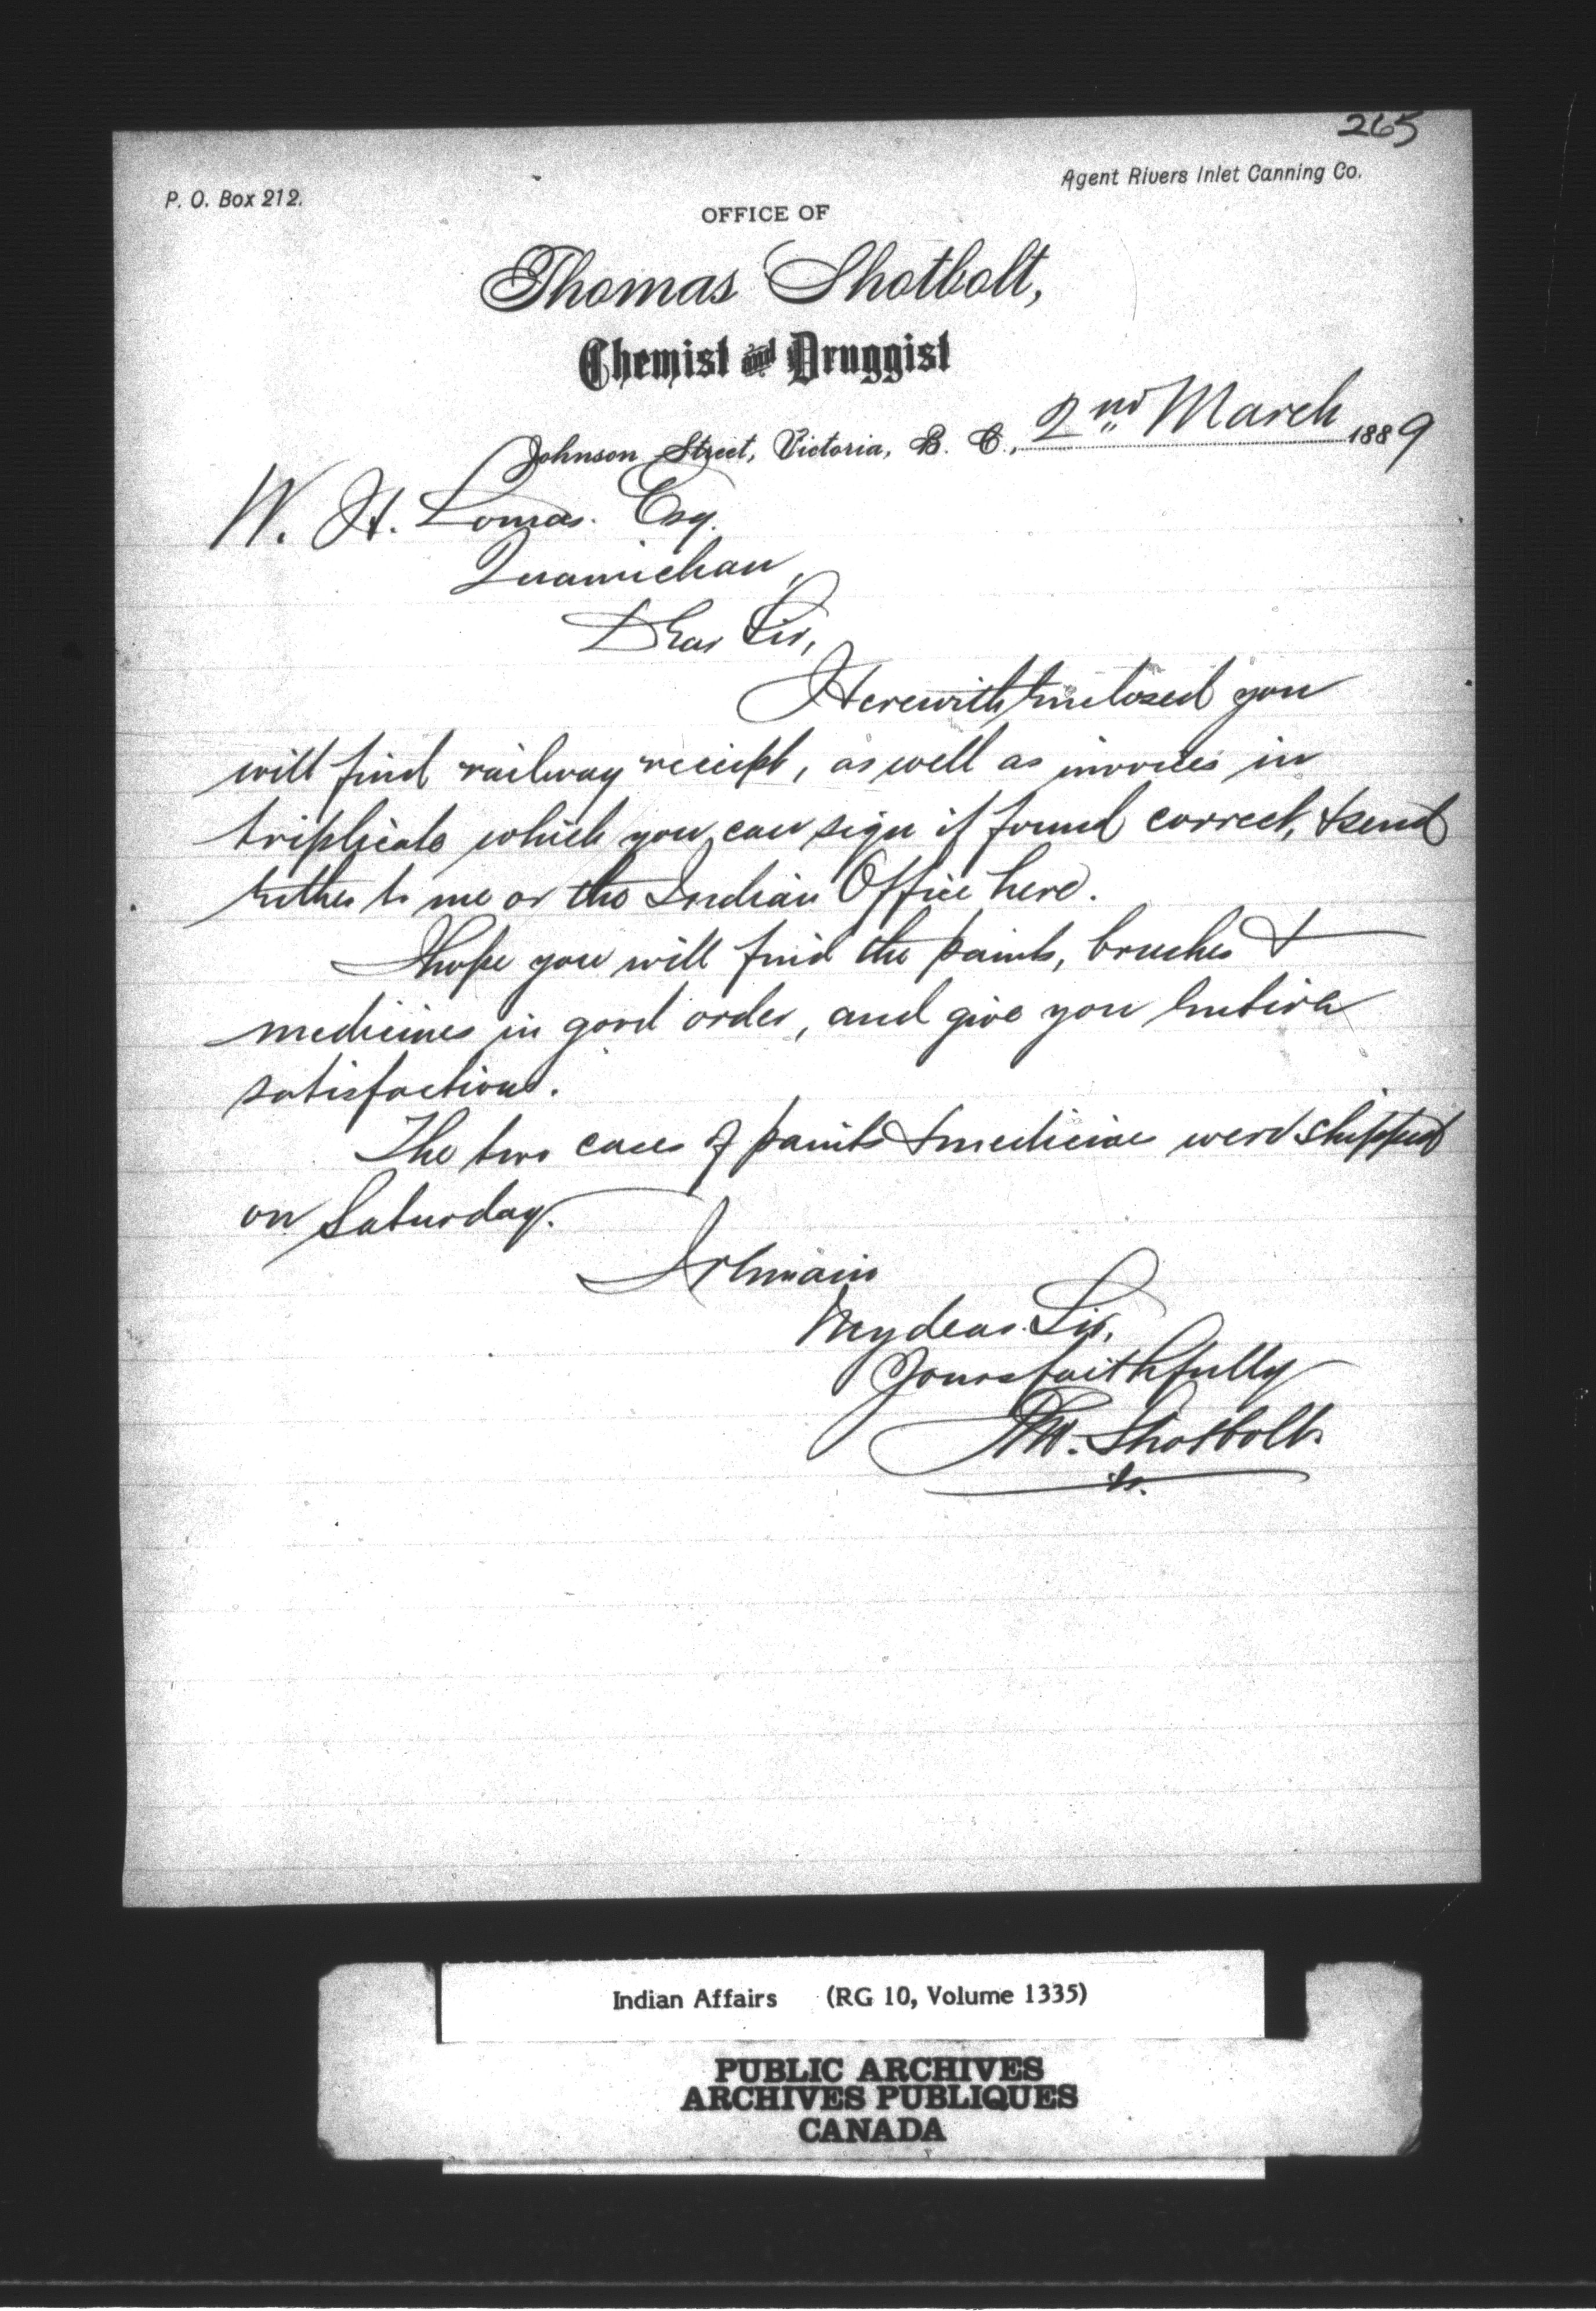 265
P. O. Box 212.
Agent Rivers Inlet Canning Co.
OFFICE OF
Thomas Shotbolt,
Chemist and Druggist
Johnson Street, Victoria, B. C., 2nd March 1889
W. H. Lomas. Esq.
Quamichan,
Dear Sir,
Herewith Enclosed you
will find railway receipt, as well as invoices in
triplicate which you can sign if found correct, & send
Either to me or the Indian Office here.
I hope you will find the paints, brushes &
medicines in good order, and give you Entire
satisfaction.
The two cases of paints & medicines were shipped
on Saturday.
I remain
My dear Sir,
Yours faithfully
Thos. Shotbolt.
Indian Affairs (RG 10, Volume 1335)
PUBLIC ARCHIVES
ARCHIVES PUBLIQUES
CANADA